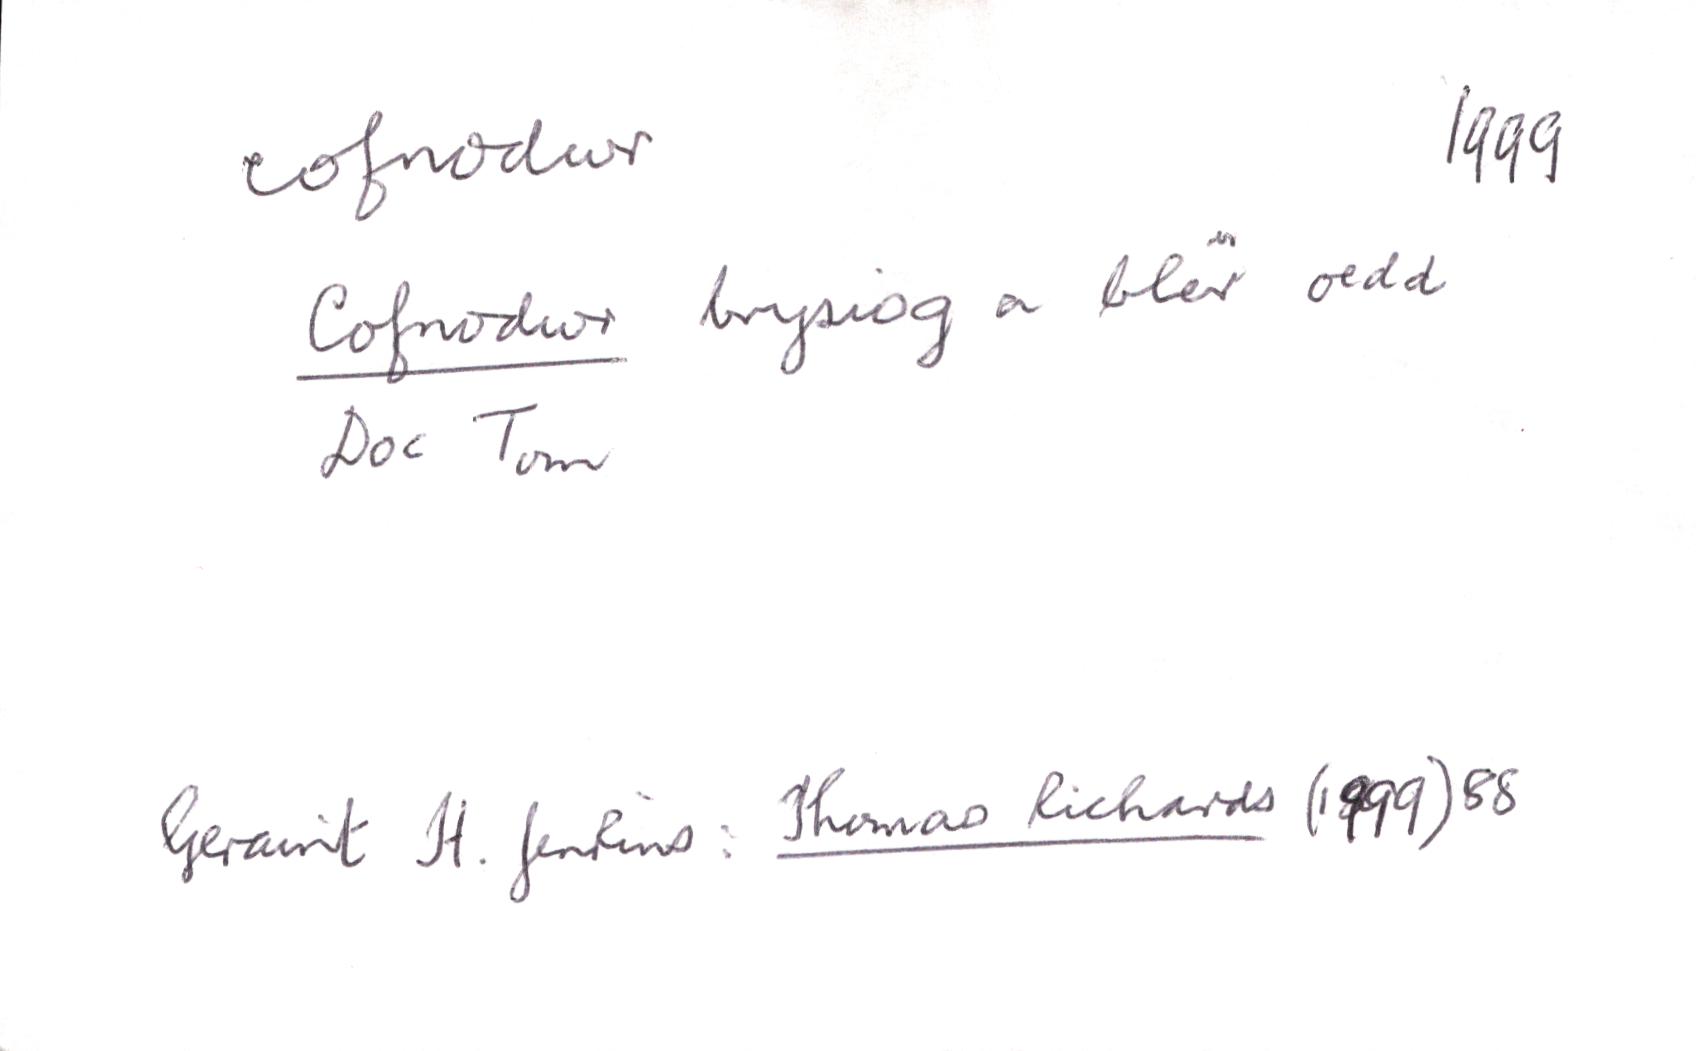 cofnodwr 1999
Cofnodwr brysiog a blêr oedd
Doc Tom
Geraint H. Jenkins: Thomas Richards (1999) 88